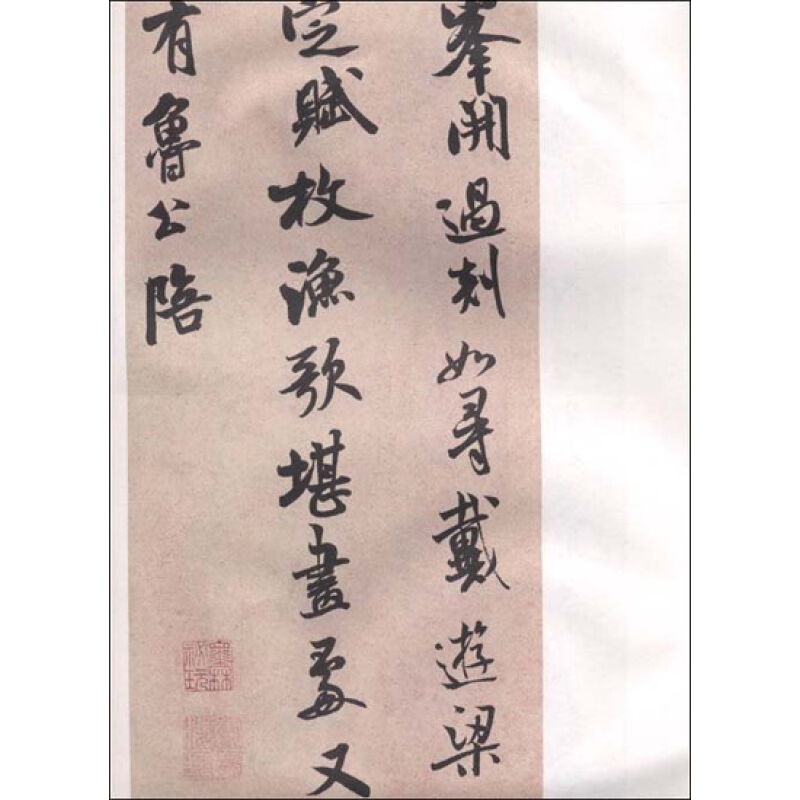 峯開過剡如尋戴遊梁
定賦枚漁歌堪畫處又
有魯公陪